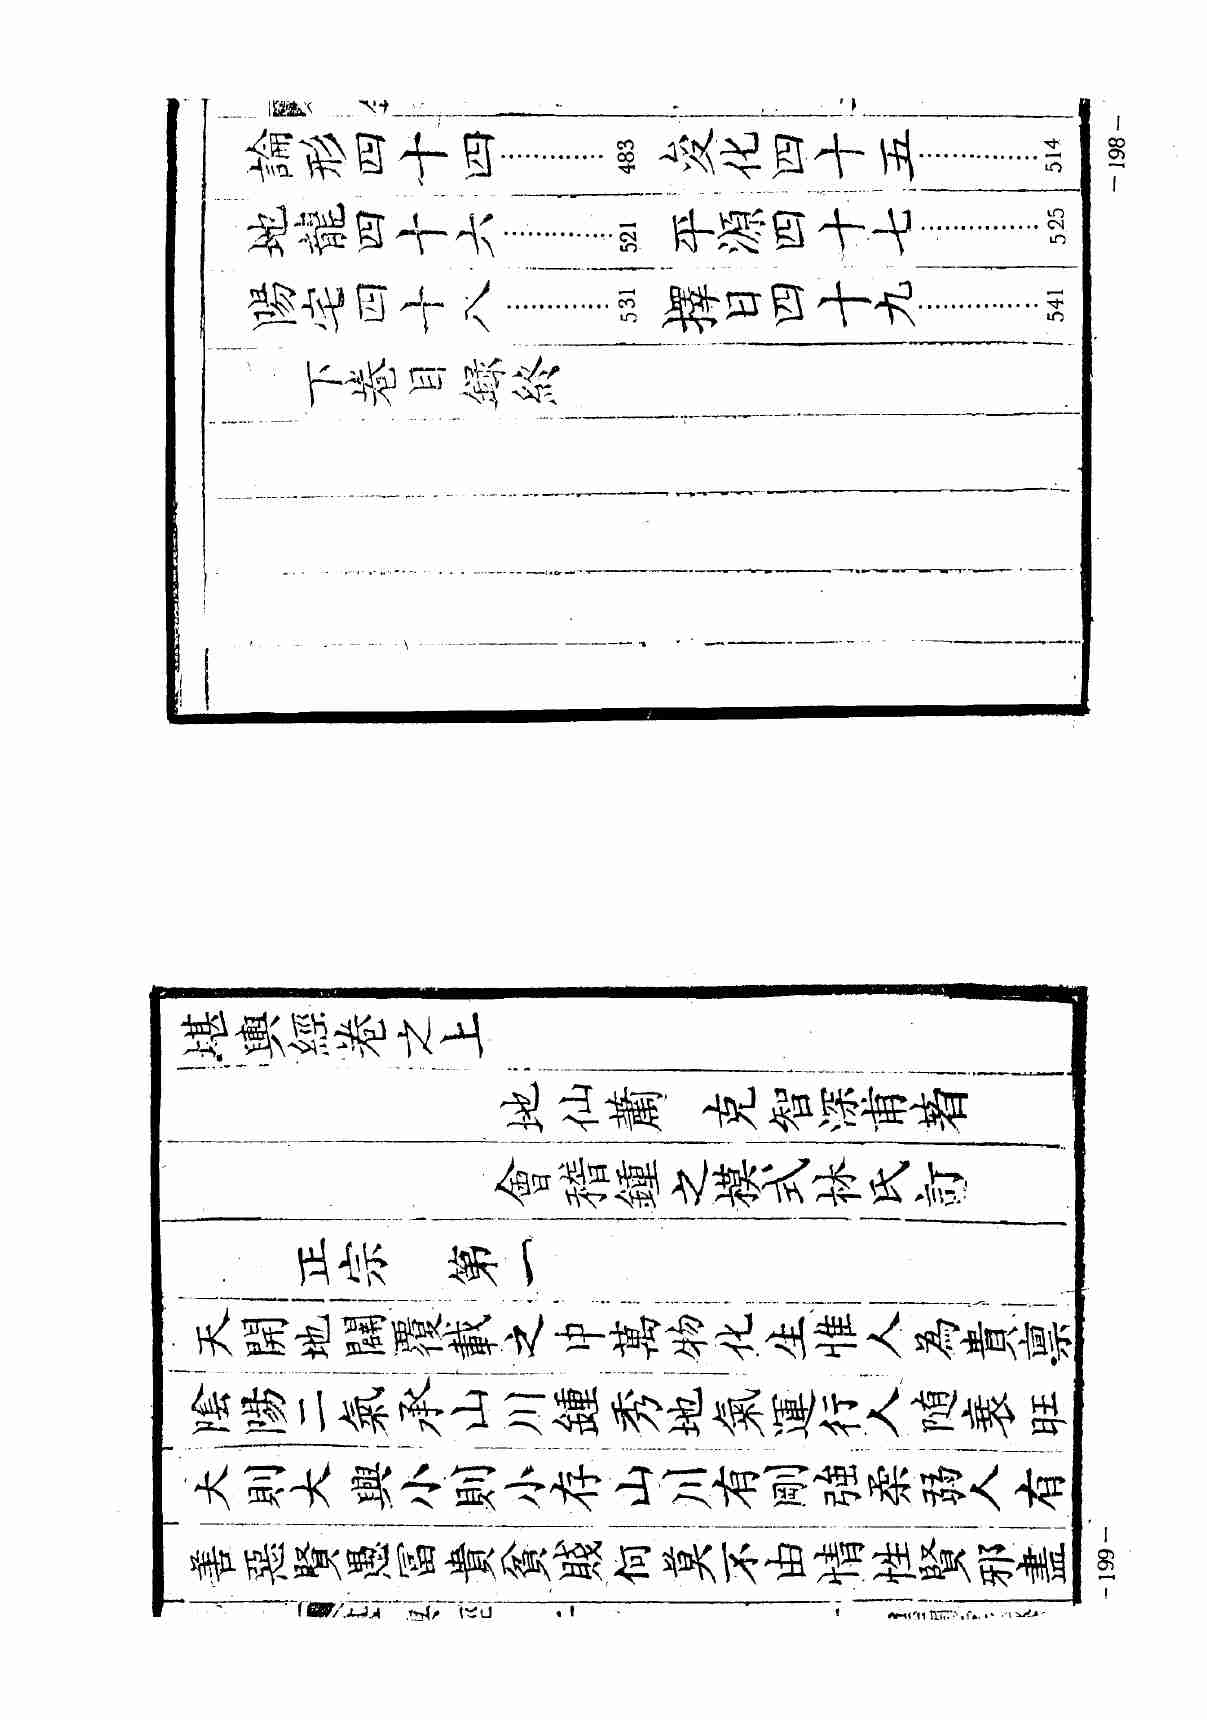 論形四十四…………483 變化四十五……………514
地龍四十六…………521 平源四十七……………525
陽宅四十八…………531 擇日四十九……………541
下卷目錄終
－198－
堪輿經卷之上
地仙蕭 克智深甫著
會稽鍾之模式林氏訂
正宗 第一
天開地闢覆載之中萬物化生惟人為貴禀
陰陽二氣承山川鍾秀地氣運行人随衰旺
大則大興小則小存山川有剛強柔弱人有
善惡賢愚富貴貧賤何莫不由情性賢邪盡
－199－